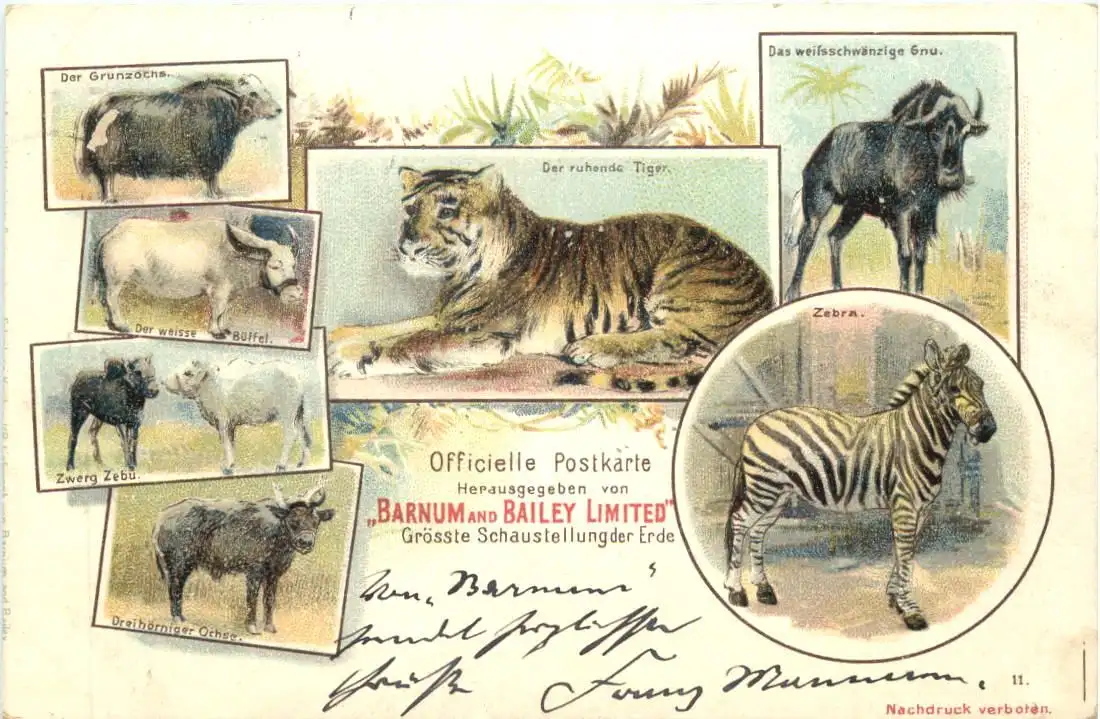 Der Grunzochs.
Das weifsschwänzige Gnu.
Der ruhende Tiger.
Der weisse Büffel.
Zebra.
Zwerg Zebu.
Officielle Postkarte
Herausgegeben von
„BARNUM AND BAILEY LIMITED"
Grösste Schaustellung der Erde
Dreihörniger Ochse.
Von „Barnum"
sendet herzlichste
Grüße Franz
11.
Nachdruck verboten.